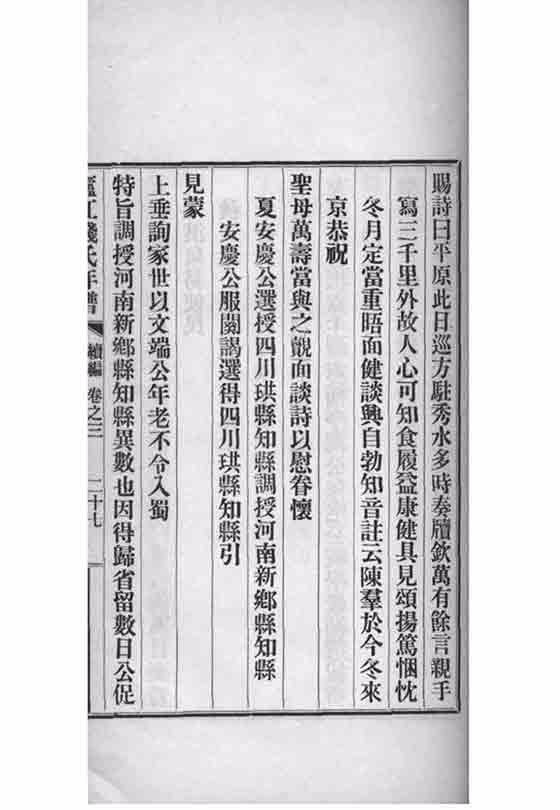 賜詩曰平原此日巡方駐秀水多時奏牘欽萬有餘言親手
寫三千里外故人心可知食履益康健具見頌揚篤悃忱
冬月定當重晤面健談興自勃知音註云陳羣於今冬來
京恭祝
聖母萬壽當與之覿面談詩以慰眷懷
夏安慶公選授四川珙縣知縣調授河南新鄉縣知縣
安慶公服闋謁選得四川珙縣知縣引
見蒙
上垂詢家世以文端公年老不令入蜀
特旨調授河南新鄉縣知縣異數也因得歸省留數日公促
廬江錢氏年譜 續編 卷之三 二十七